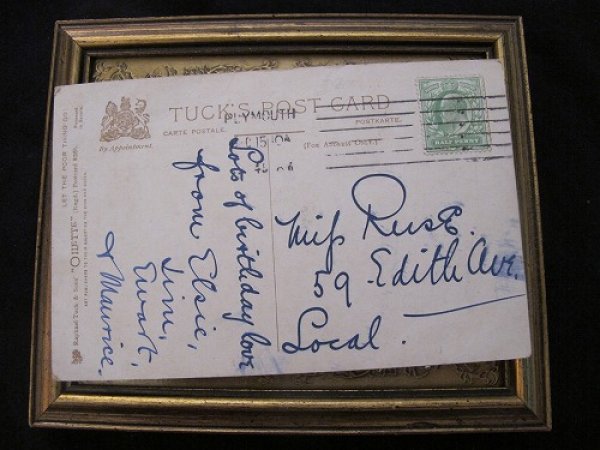 TUCK'S POST CARD
CARTE POSTALE.
POSTKARTE.
By Appointment.
(For Address Only.)
PLYMOUTH
HALF PENNY
Lots of birthday love
from Elsie,
Jim,
Ewart,
& Maurice.
Miss Rusk.
59 Edith Ave.
Local.
LET THE POOR THING GO!
Raphael Tuck & Sons' "OILETTE" [Regd.] Postcard